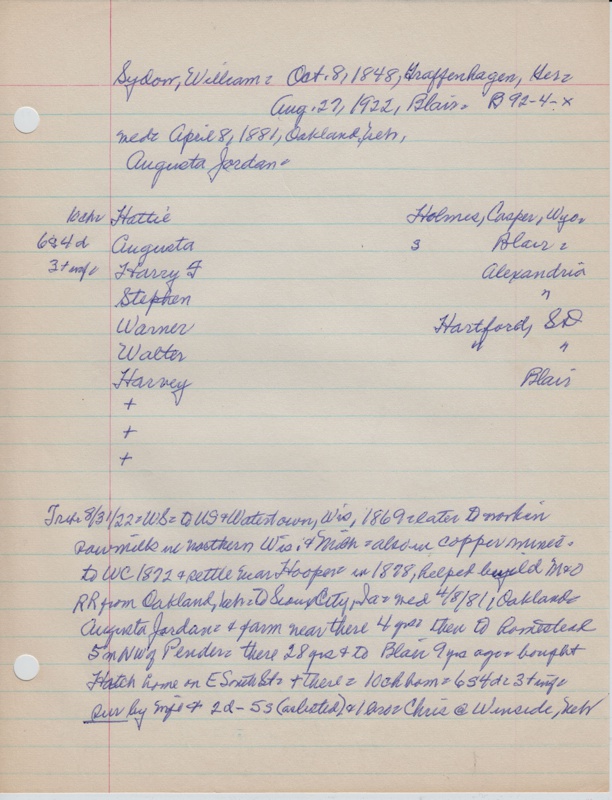 Sydow, William = Oct. 8, 1848, Graffenhagen, Ger =
Aug. 27, 1922, Blair = B 92-4-x
med = April 8, 1881, Oakland, Neb,
Augusta Jordan =
10 chr Hattie Holmes, Casper, Wyo =
6s4d Augusta s Blair =
3+inf = Harry F Alexandria
Stephen "
Warner Hartford, SD
Walter " "
Harvey Blair
+
+
+
Trib 8/31/22 = WS = to US & Watertown, Wis, 1869 = later to work in
sawmills in northern Wis. & Mich = also in copper mines =
to WC 1872 & settle near Hooper = in 1878, helped build M&O
RR from Oakland, Neb = to Sioux City, Ia = med 4/8/81, Oakland =
Augusta Jordan = & farm near there 4 yrs = then to homestead
5 m NW of Pender = there 28 yrs & to Blair 9 yrs ago = bought
Hatch home on E South St = + there = 10 ch born = 6s4d = 3+inf =
sur by wife & 2d - 5s (as listed) & 1 bro = Chris @ Winside, Neb